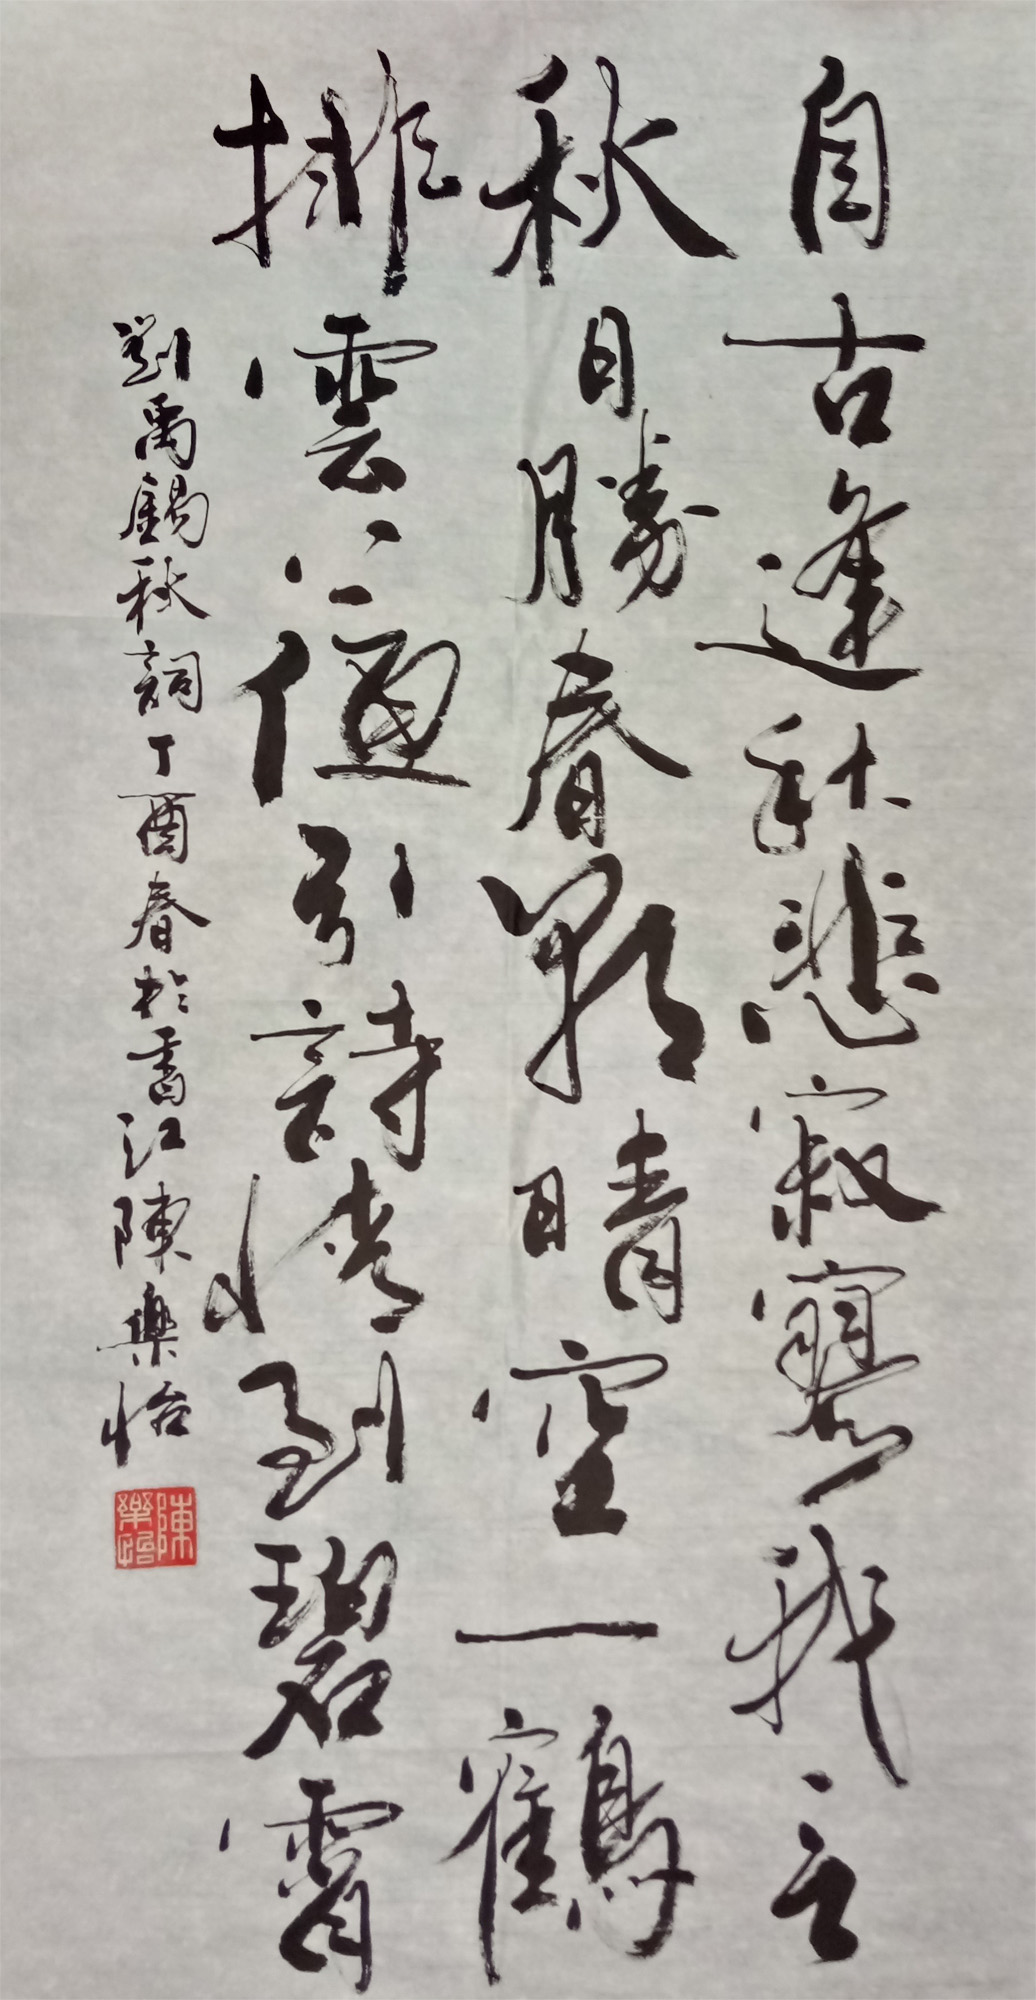 自古逢秋悲寂寥我言
秋日勝春朝晴空一鶴
排雲上便引詩情到碧霄
劉禹錫秋詞丁酉春於香江陳樂怡
陳樂怡